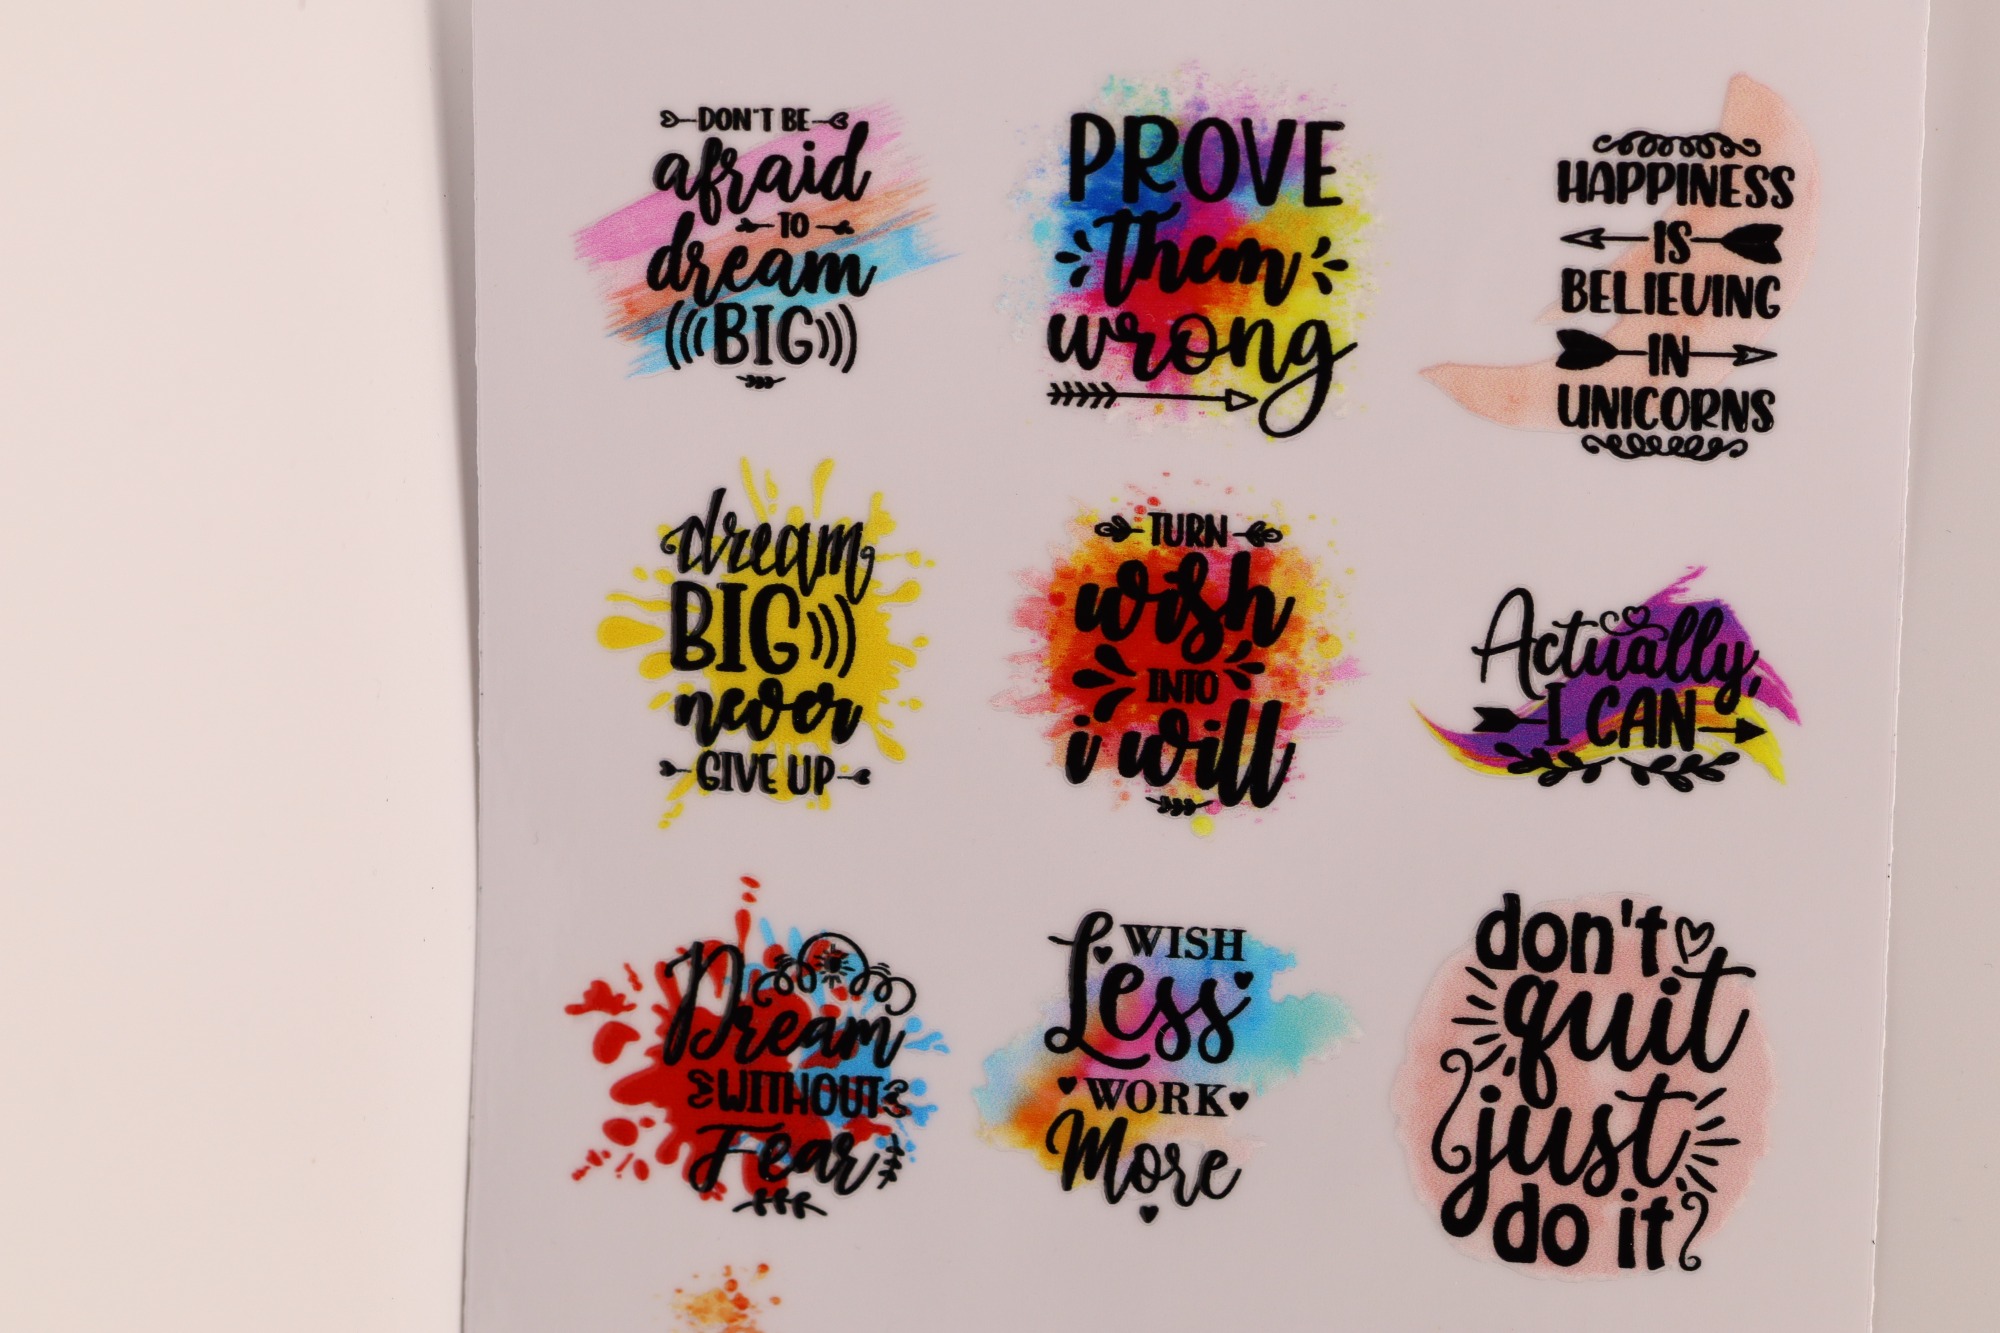 DON'T BE
afraid
TO
dream
BIG
PROVE
them
wrong
HAPPINESS
IS
BELIEVING
IN
UNICORNS
dream
BIG
never
GIVE UP
TURN
wish
INTO
i will
Actually,
I CAN
Dream
WITHOUT
Fear
WISH
Less
WORK
More
don't
quit
just
do it